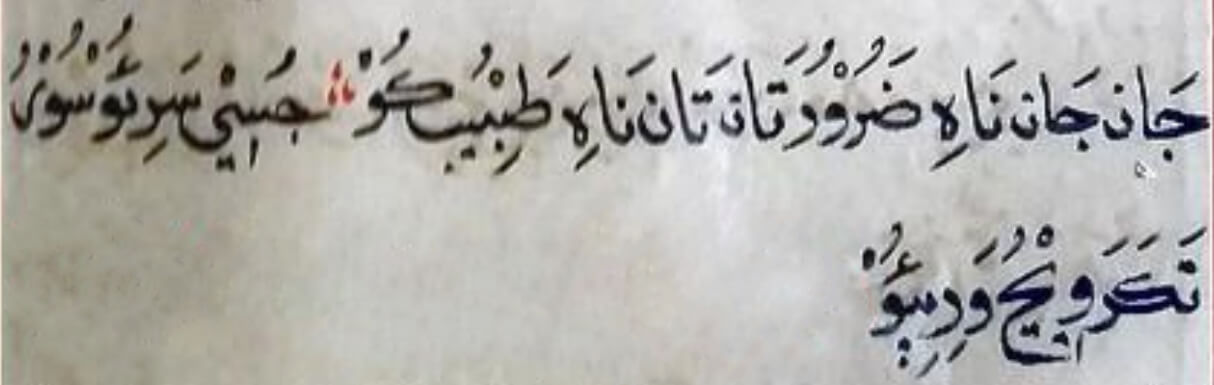 جَان جَان نَاهِ ضَرُوْرُ تَان تَان نَاهِ طَبِيْبُ كُوْ جُسِيْ سَرِ تئَوُ سُوْرُ
تَكَرَ وِيْجُ